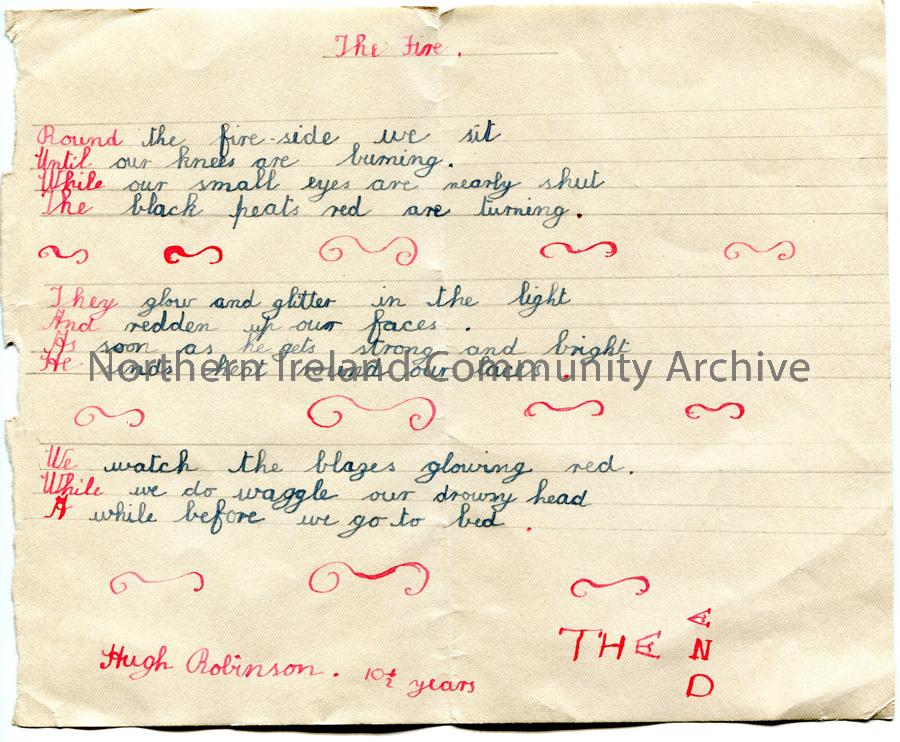 The Fire.
Round the fire-side we sit
Until our knees are burning.
While our small eyes are nearly shut
The black peats red are turning.
They glow and glitter in the light
And redden up our faces.
As soon as he gets strong and bright
He heat round our .
Northern Ireland Community Archive
We watch the blazes glowing red.
While we do waggle our drowsy head
A while before we go to bed.
Hugh Robinson. 10½ years
THE
E
N
D